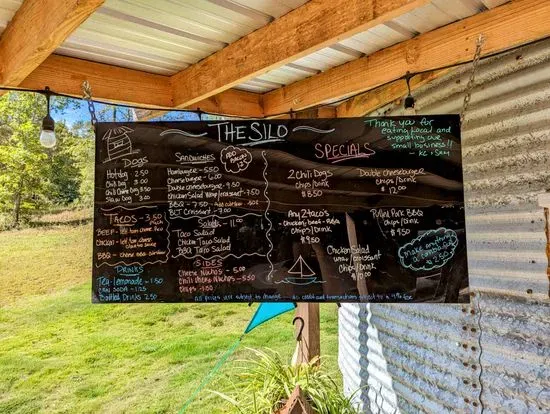 THE SILO
Thank you for
eating Local and
supporting our
small business!!
DOGS
Hotdog 2.50
Chili Dog 3.00
Chili Cheese Dog 3.50
Slaw Dog 3.50
SANDWICHES
Hamburger - 5.50
Cheeseburger - 6.00
Double cheeseburger - 9.50
Chicken Salad wrap/croissant - 7.50
BBQ - 7.50
BLT Croissant - 7.00
ADD
BACON
SPECIALS
2 Chili Dogs
Chips/Drink
$8.50
Double cheeseburger
Chips/Drink
$12.00
TACOS - 3.50
BEEF -
Chicken -
BBQ -
SALADS
Taco Salad
Chicken Taco Salad
BBQ Taco Salad
Any 2 tacos
Chicken, beef, BBQ
Chips/Drink
$9.50
Pulled Pork BBQ
Chips/Drink
$9.50
SIDES
Cheese Nachos - 5.00
Chili Cheese Nachos - 5.50
Chips - 1.00
Chicken Salad
wrap/croissant
Chips/Drink
make anything
a combo
2.50
DRINKS
Tea - Lemonade - 1.50
Can SODA - 1.25
Bottled Drinks 2.50
All prices are subject to change